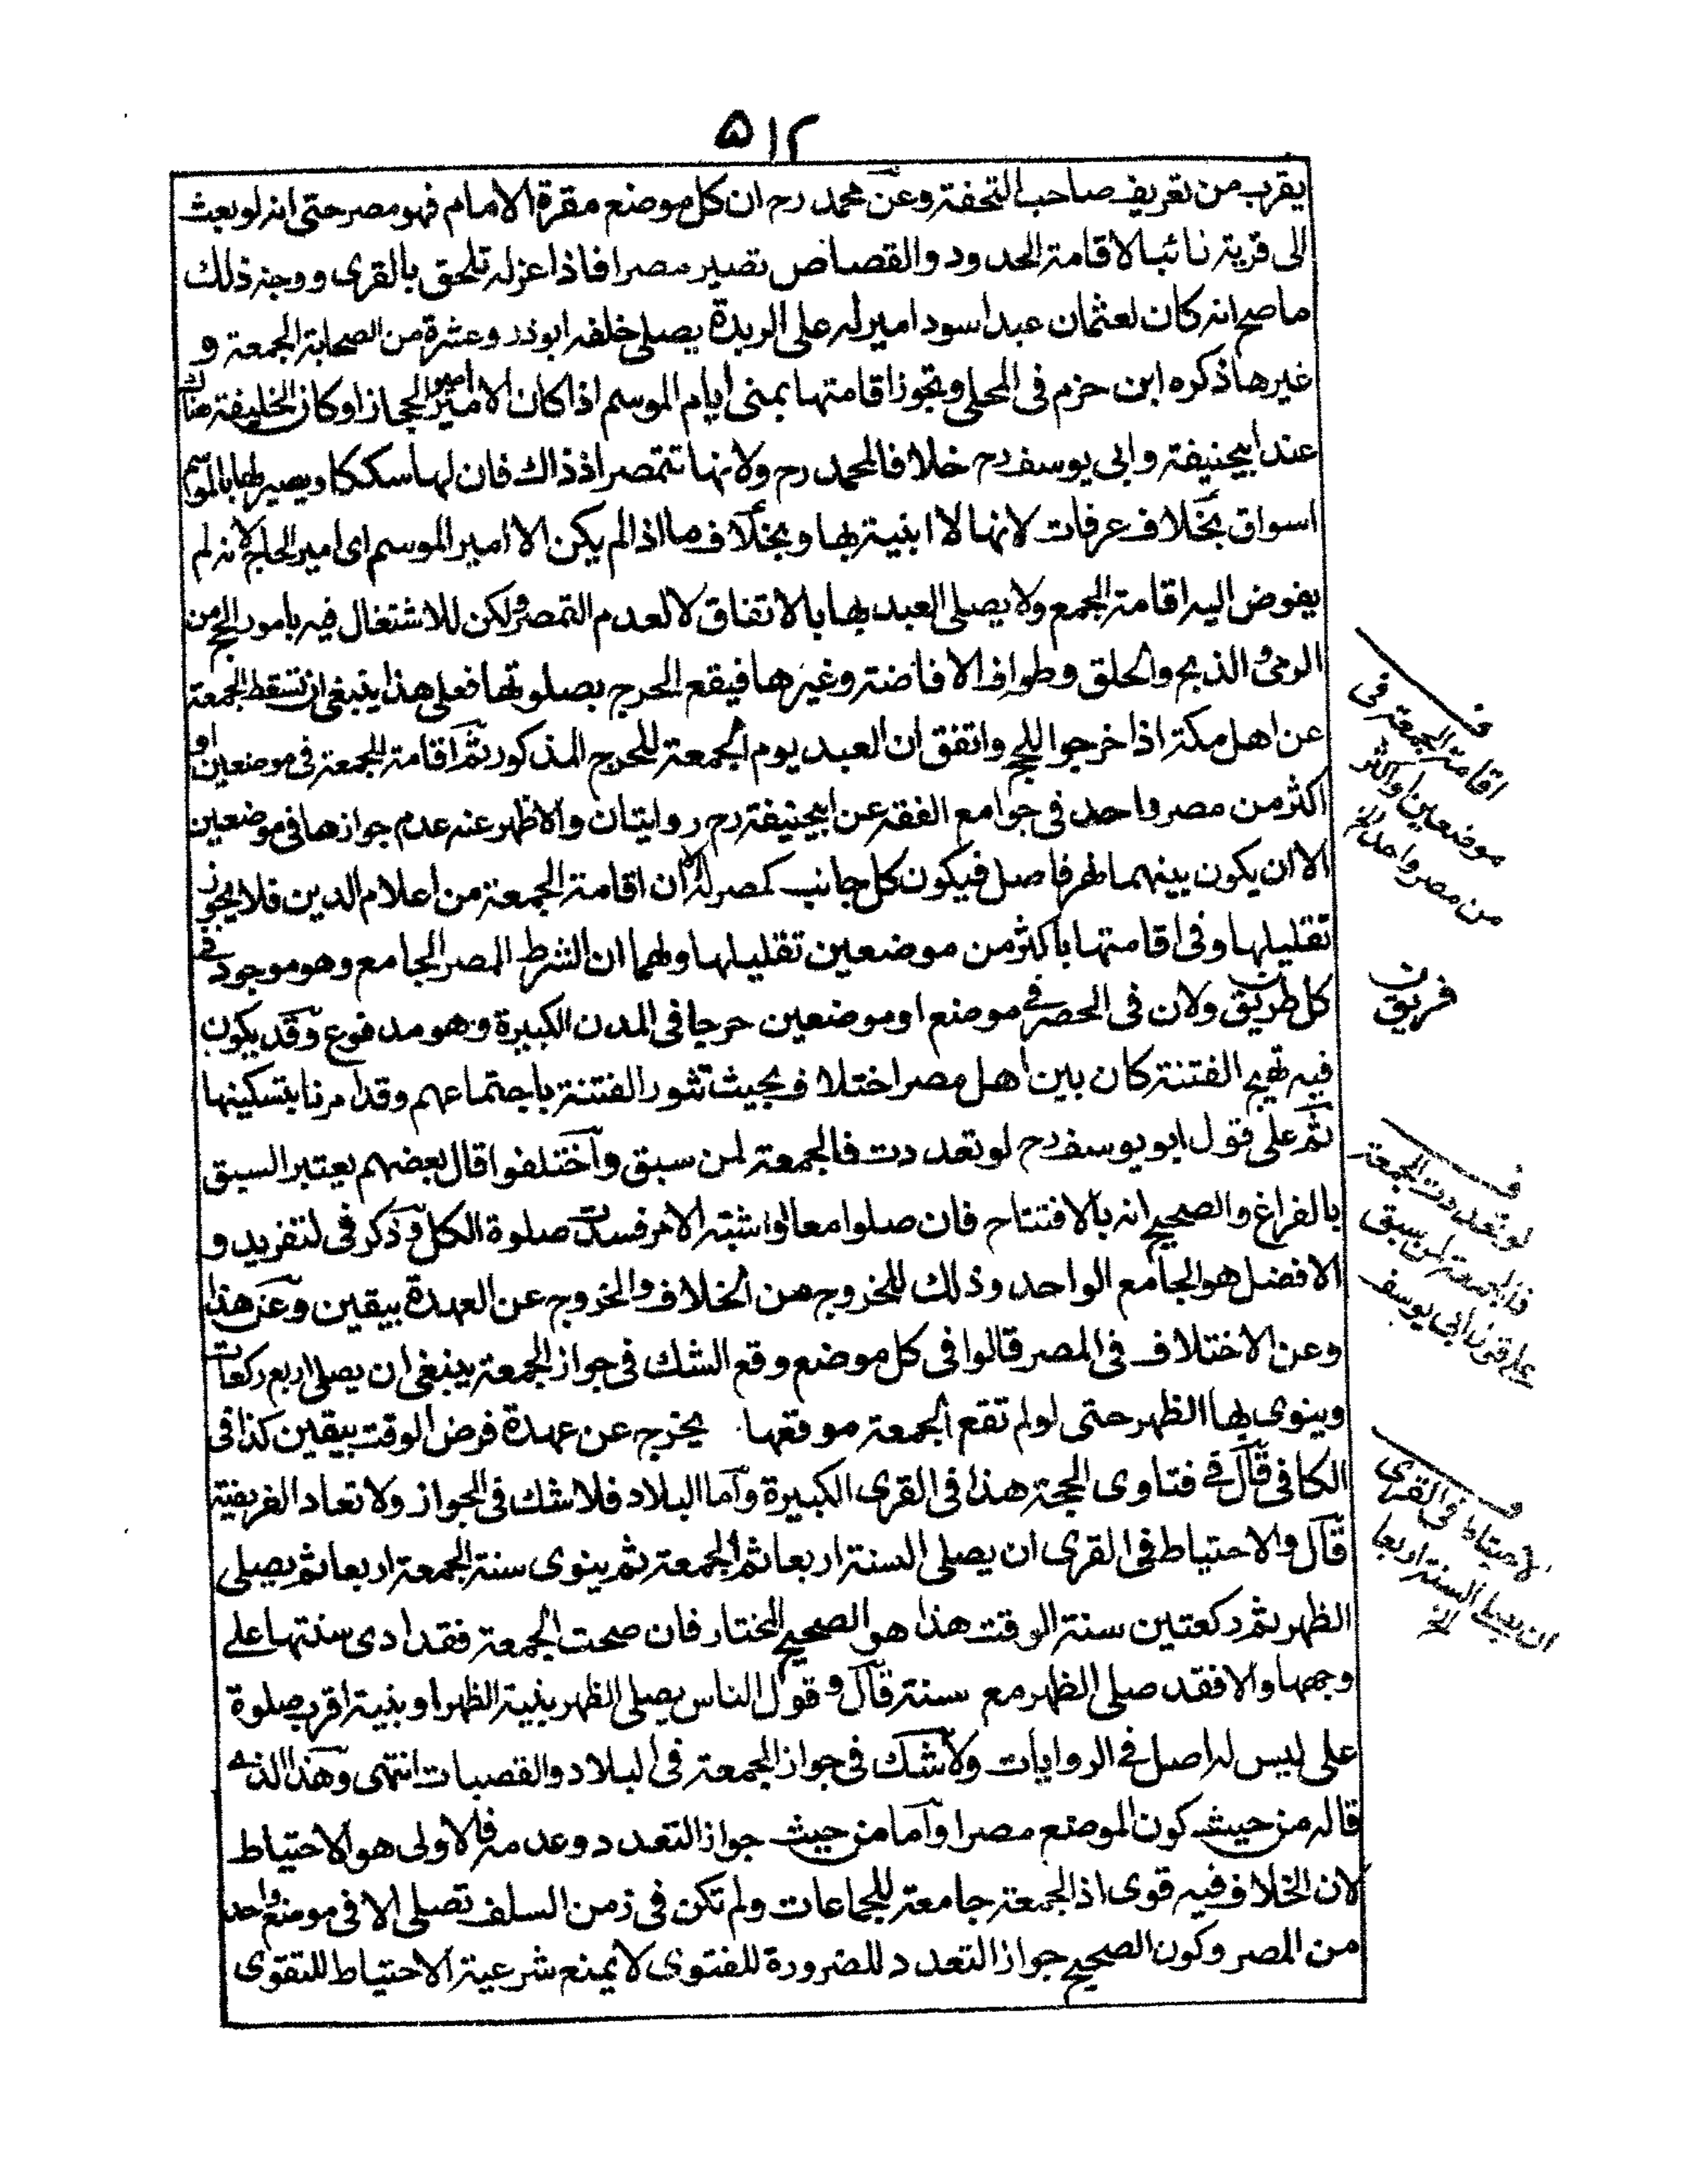 ۵۱۲
يقرب من تعريف صاحب التحفة وعن محمد رح ان كل موضع مقرة الامام فهو مصر حتى انه لو بعث
الى قرية نائبا لاقامة الحدود والقصاص تصير مصرا فاذا عزله تلحق بالقرى ووجه ذلك
ما صح انه كان لعثمان عبد اسود امير له على الربدة يصلى خلفه ابوذر وعشرة من الصحابة الجمعة و
غيرها ذكره ابن حزم فى المحلى وتجوز اقامتها بمنى ايام الموسم اذا كان الامير امير الحجاز او كان الخليفة هناك
عند ابيحنيفة وابى يوسف رح خلافا لمحمد رح ولانها تتمصر اذ ذاك فان لها سككا ويصير لها بالموسم
اسواق بخلاف عرفات لانها لا ابنية بها وبخلاف ما اذا لم يكن الا امير الموسم اى امير الحاج لانه لم
يفوض اليه اقامة الجمع ولا يصلى العيد بها بالاتفاق لا لعدم التمصر ولكن للاشتغال فيه بامور الحج من
الرمى والذبح والحلق وطواف الافاضة وغيرها فيقع الحرج بصلوتها فعلى هذا ينبغى ان تسقط الجمعة
عن اهل مكة اذا خرجوا للحج واتفق ان العيد يوم الجمعة للحرج المذكور ثم اقامة الجمعة فى موضعين او
اكثر من مصر واحد فى جوامع الفقه عن ابيحنيفة رح روايتان والاظهر عنه عدم جوازها فى موضعين
الا ان يكون بينهما نهر فاصل فيكون كل جانب كمصر له لان اقامة الجمعة من اعلام الدين فلا يجوز
تقليلها وفى اقامتها باكثر من موضعين تقليلها ولهما ان الشرط المصر الجامع وهو موجود فى
كل طريق ولان فى الحصر فى موضع او موضعين حرجا فى المدن الكبيرة وهو مدفوع وقد يكون
فيه تهيج الفتنة كان بين اهل مصر اختلاف بحيث تثور الفتنة باجتماعهم وقد امرنا بتسكينها
ثم على قول ابو يوسف رح لو تعددت فالجمعة لمن سبق واختلفوا قال بعضهم يعتبر السبق
بالفراغ والصحيح انه بالافتتاح فان صلوا معا او اشتبه الامر فسدت صلوة الكل وذكر فى التفريد و
الافضل هو الجامع الواحد وذلك للخروج من الخلاف والخروج عن العهدة بيقين وعن هذا
وعن الاختلاف فى المصر قالوا فى كل موضع وقع الشك فى جواز الجمعة ينبغى ان يصلى اربع ركعات
وينوى بها الظهر حتى لو لم تقع الجمعة موقعها يخرج عن عهدة فرض الوقت بيقين كذا فى
الكافى قال فى فتاوى الحجة هذا فى القرى الكبيرة واما البلاد فلا شك فى الجواز ولا تعاد الفريضة
قال والاحتياط فى القرى ان يصلى السنة اربعا ثم الجمعة ثم ينوى سنة الجمعة اربعا ثم يصلى
الظهر ثم ركعتين سنة الوقت هذا هو الصحيح المختار فان صحت الجمعة فقد ادى سنتها على
وجهها والا فقد صلى الظهر مع سنة قال وقول الناس يصلى الظهر بنية الظهر او بنية اقرب صلوة
على ليس له اصل فى الروايات ولا شك فى جواز الجمعة فى البلاد والقصبات انتهى وهذا الذى
قاله من حيث كون الموضع مصرا واما من حيث جواز التعدد وعدمه فالاولى هو الاحتياط
لان الخلاف فيه قوى اذ الجمعة جامعة للجماعات ولم تكن فى زمن السلف تصلى الا فى موضع واحد
من المصر وكون الصحيح جواز التعدد للضرورة للفتوى لا يمنع شرعية الاحتياط للتقوى
ف
اقامة الجمعة فى
موضعين او اكثر
من مصر واحد الخ
ن
فريق
ف
لو تعددت الجمعة
فالجمعة لمن سبق
على قول ابى يوسف
ف
الاحتياط فى القرى
ان يصلى السنة اربعا
الخ